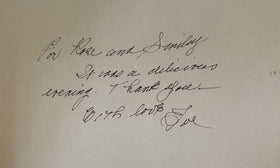 For Rose and Smiley
It was a delicious
evening. Thank you
With love Zoe